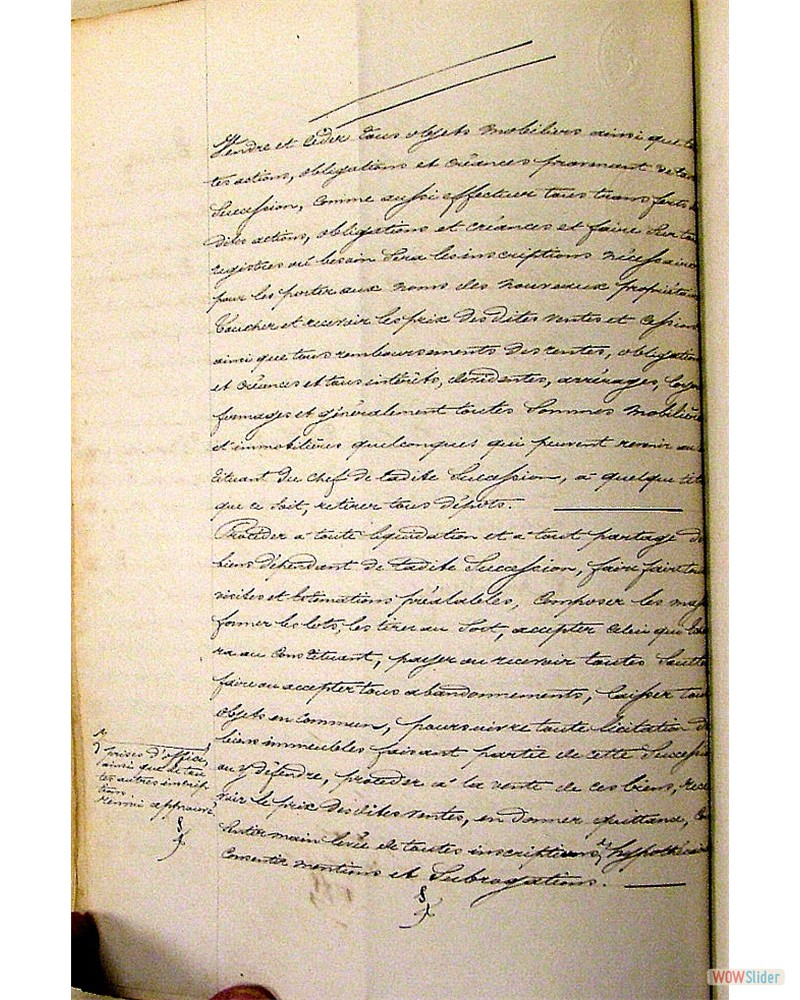 Vendre et céder tous objets mobiliers ainsi que tou
tes actions, obligations et créances provenant de la
Succession, comme aussi effectuer tous transferts
dites actions, obligations et créances et faire sur tou
registres où besoin sera les inscriptions nécessaires
pour les porter aux noms des nouveaux propriétair
Toucher et recevoir les prix des dites ventes et cessions
ainsi que tous remboursements des rentes, obligation
et créances et tous intérêts, dividentes, arrérages, loyers
fermages et généralement toutes sommes mobilière
et immobilières quelconques qui peuvent revenir au
tituant du chef de ladite Succession, à quelque tit
que ce soit, retirer tous dépôts.
Procéder à toute liquidation et à tout partage de
biens dépendant de ladite Succession, faire faire tou
visites et estimations préalables, composer les mas
former les lots, les tirer au sort, accepter celui que
ra au constituant, payer ou recevoir toutes soultes
faire ou accepter tous abandonnements, laisser tou
objets en commun, poursuivre toute licitation de
biens immeubles faisant partie de cette Successio
ou y défendre, procéder à la vente de ces biens, rece
voir le prix des dites ventes, en donner quittance, Con
sentir main levée de toutes inscriptions hypothécair
Consentir mentions et Subrogations.
prises d'office,
ainsi que de tou
tes autres inscrip
tions
renvoi approuvé
WOWSlider